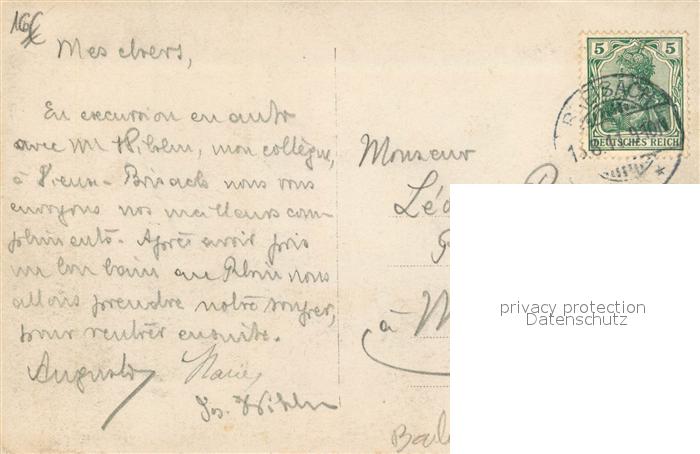 Mes chers,
En excursion en auto
avec Mr Wihlm, mon collègue,
à Vieux-Brisach nous vous
envoyons nos meilleurs com-
pliments. Après avoir pris
un bon bain au Rhin nous
allons prendre notre souper,
pour rentrer ensuite.
Auguste Marie
Jos. Wihlm
Monsieur
Léo
à M
5 5
DEUTSCHES REICH
privacy protection
Datenschutz